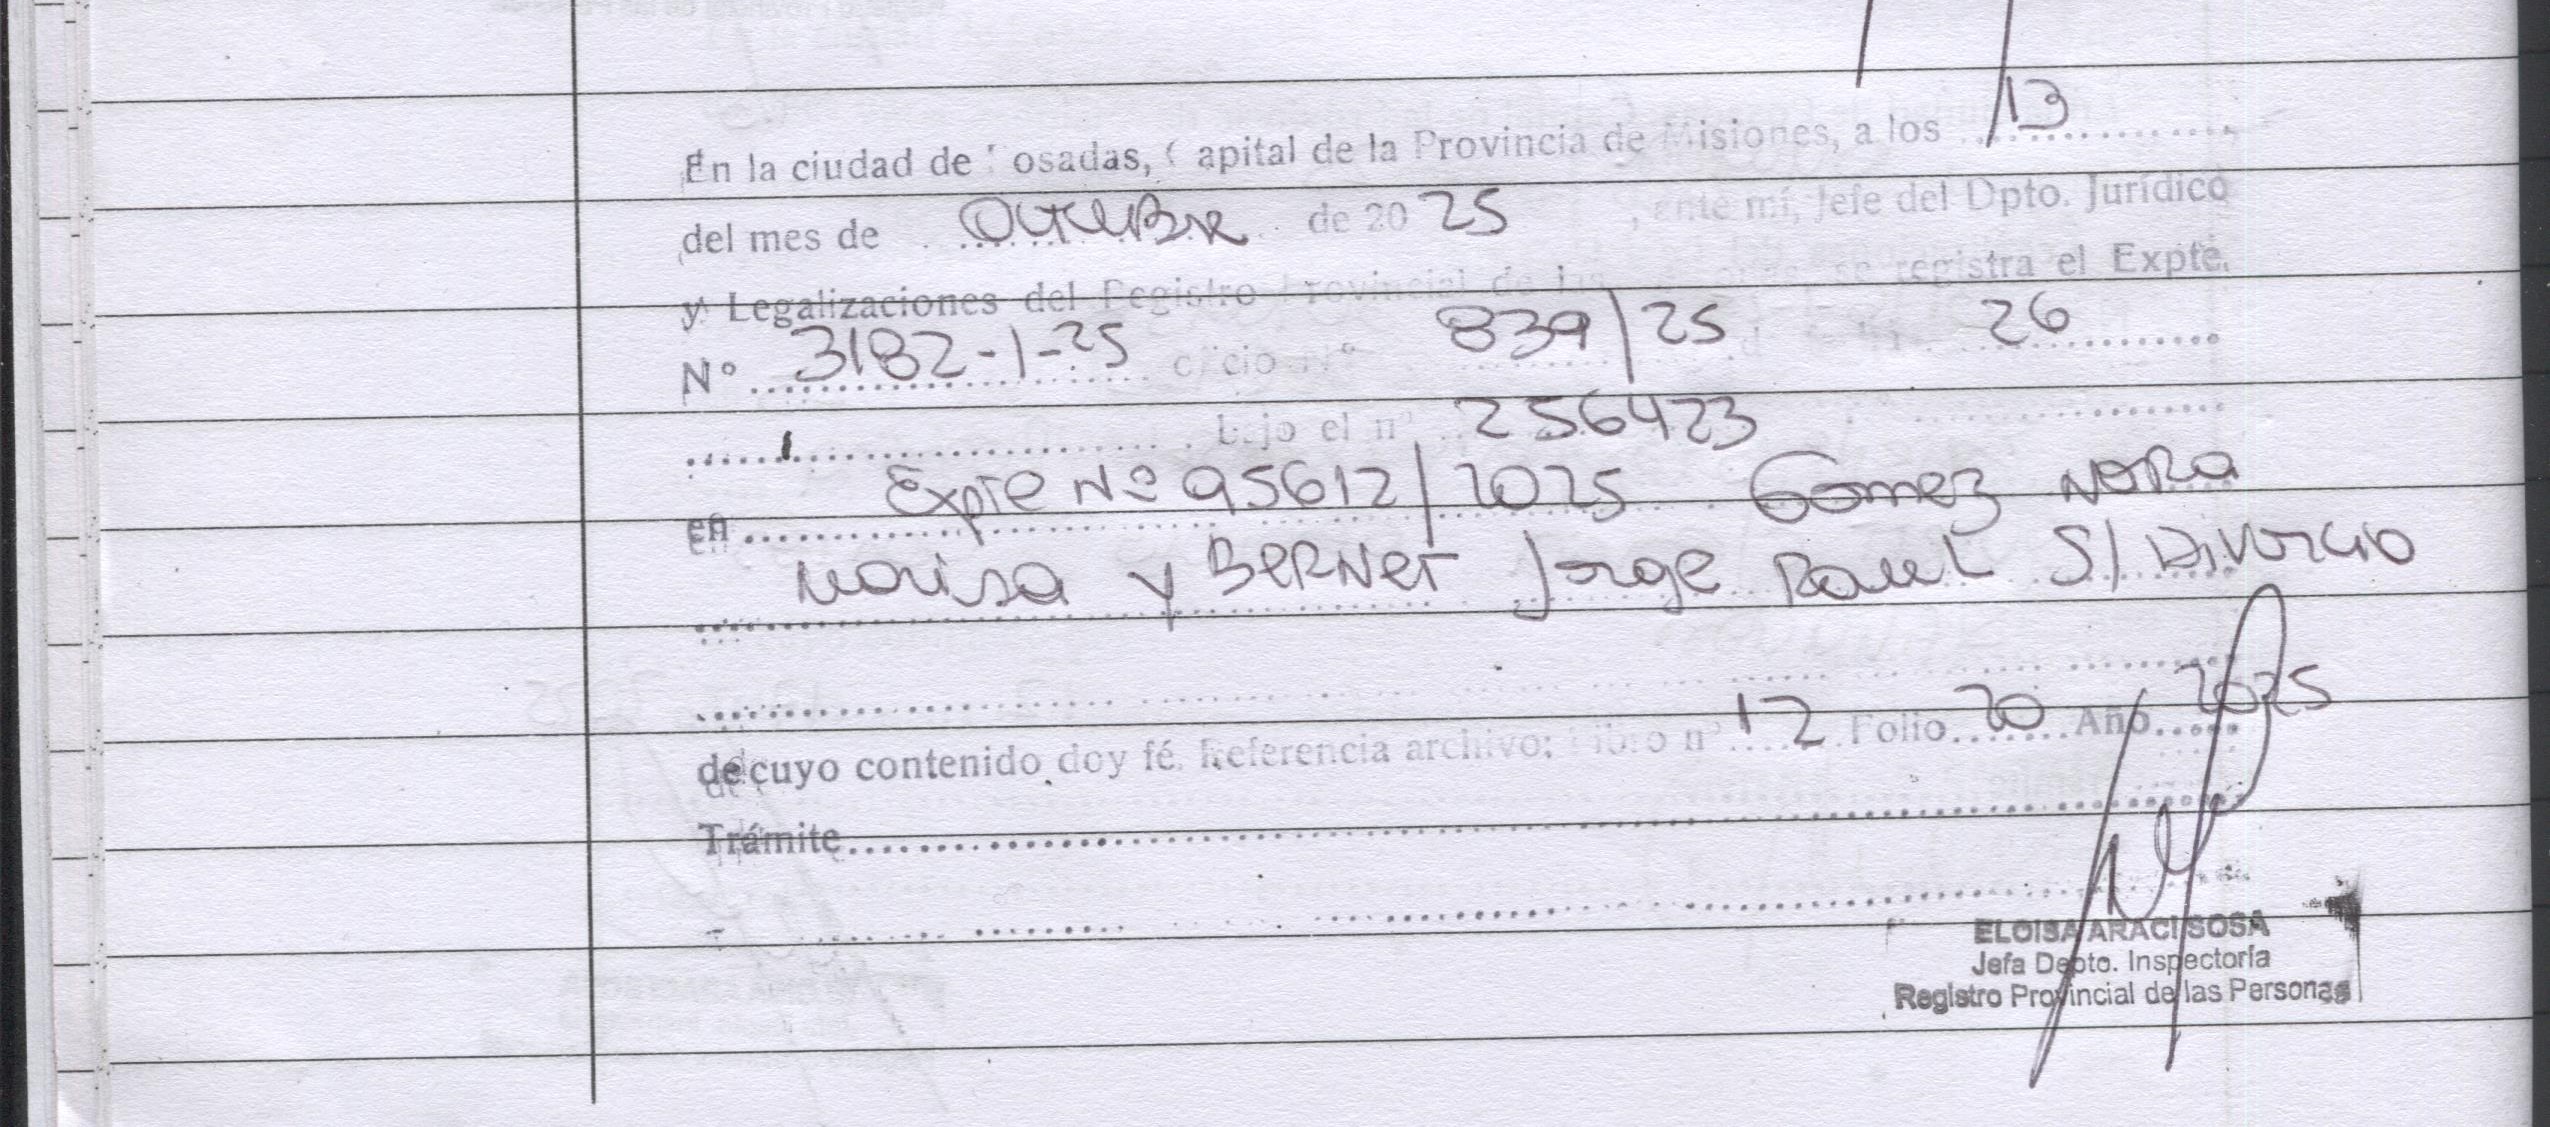 En la ciudad de Posadas, Capital de la Provincia de Misiones, a los 13
del mes de Octubre de 20 25, ante mí, Jefe del Dpto. Jurídico
y Legalizaciones del Registro Provincial de las se registra el Expte.
N° 3182-1-25 oficio N° 839/25 26
bajo el n° 256423
en Expte No 95612/2025 Gomez Nora
Marisa y Bernet Jorge Raul S/ Divorcio
de cuyo contenido doy fé. Referencia archivo: Libro n° 12 Folio 20 Año 2025
Trámite
ELOISA ARACI SOSA
Jefa Depto. Inspectoría
Registro Provincial de las Personas